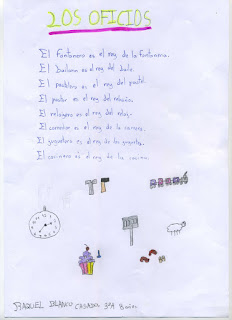 LOS OFICIOS
El Fontanero es el rey de la Fontanería.
El bailarin es el rey del baile.
El pastelero es el rey del pastel.
El pastor es el rey del rebaño.
El relojero es el rey del reloj.
El corredor es el rey de la carrera.
El juguetero es el rey de los juguetes.
El cocinero es el rey de la cocina.
RAQUEL BLANCO CASADO 3ºA 8 años